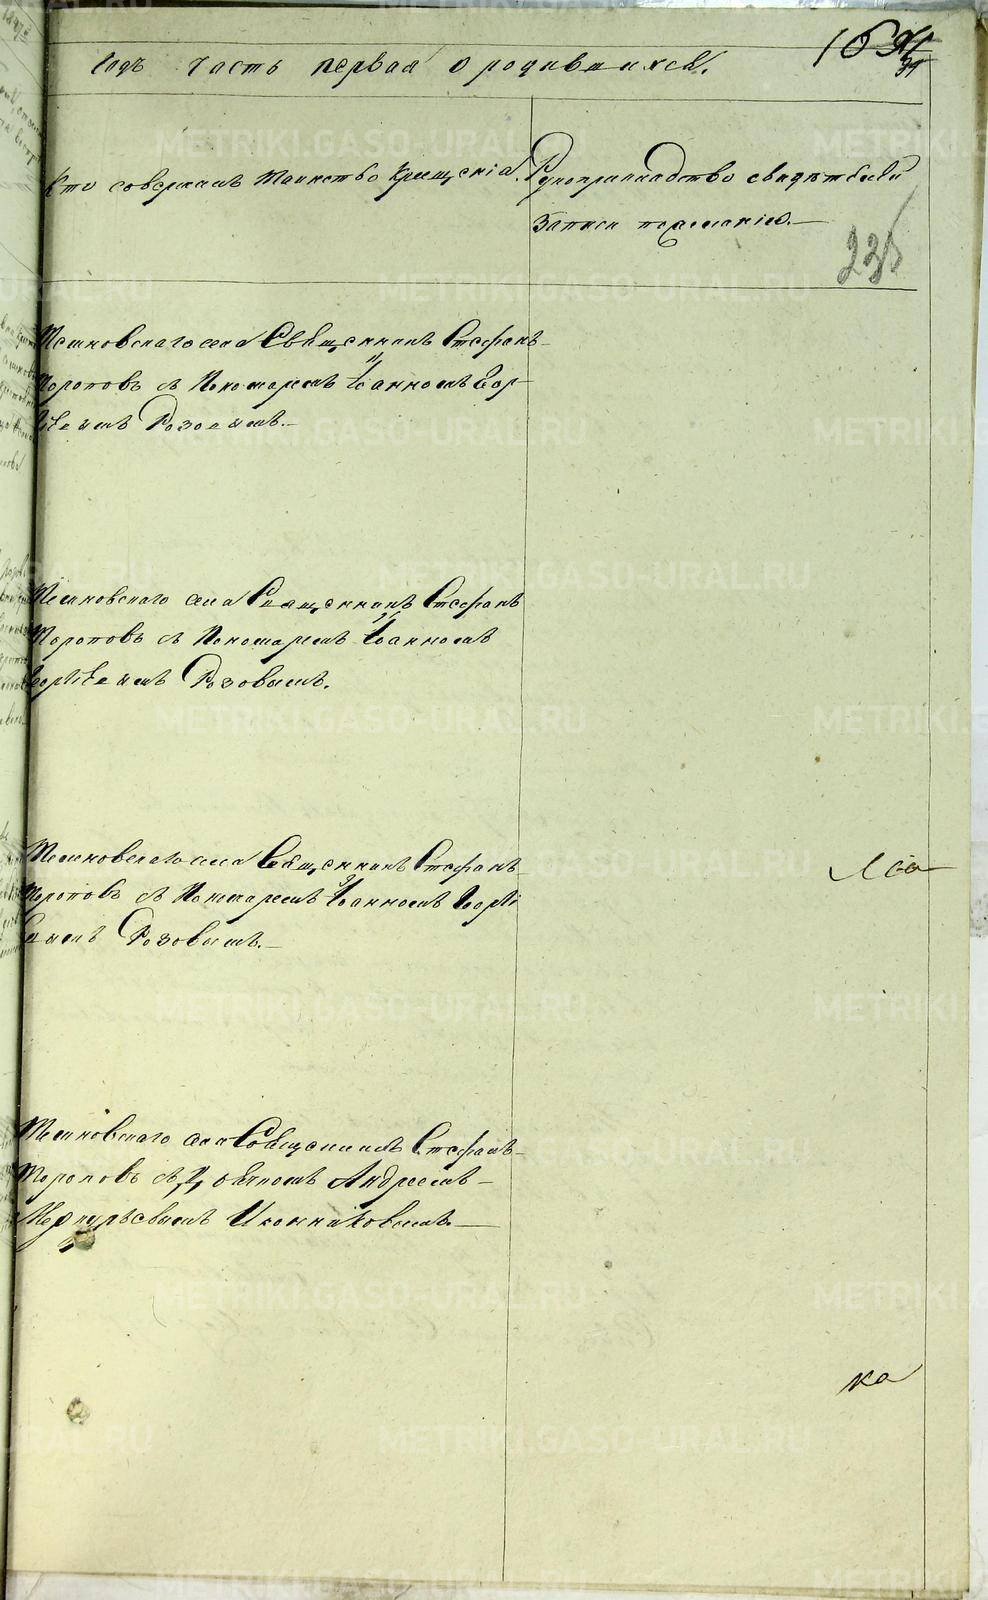 годъ часть первая о родившихся.
Кто совершилъ таинство крещенія.
Рукоприкладство свидѣтелей
записи по желанію.
235
Темновскаго села Священникъ Стефанъ
Тороповъ съ Пономаремъ Іоанномъ Геор-
гіевымъ Розовымъ.
Темновскаго села Священникъ Стефанъ
Тороповъ съ Пономаремъ Іоанномъ
Георгіевымъ Розовымъ.
Темновскаго села Священникъ Стефанъ
Тороповъ съ Пономаремъ Іоанномъ Георгі
евымъ Розовымъ.
Темновскаго села Священникъ Стефанъ
Тороповъ съ Дьячкомъ Андреемъ
Меркурьевымъ Иконниковымъ.
ка
METRIKI.GASO-URAL.RU